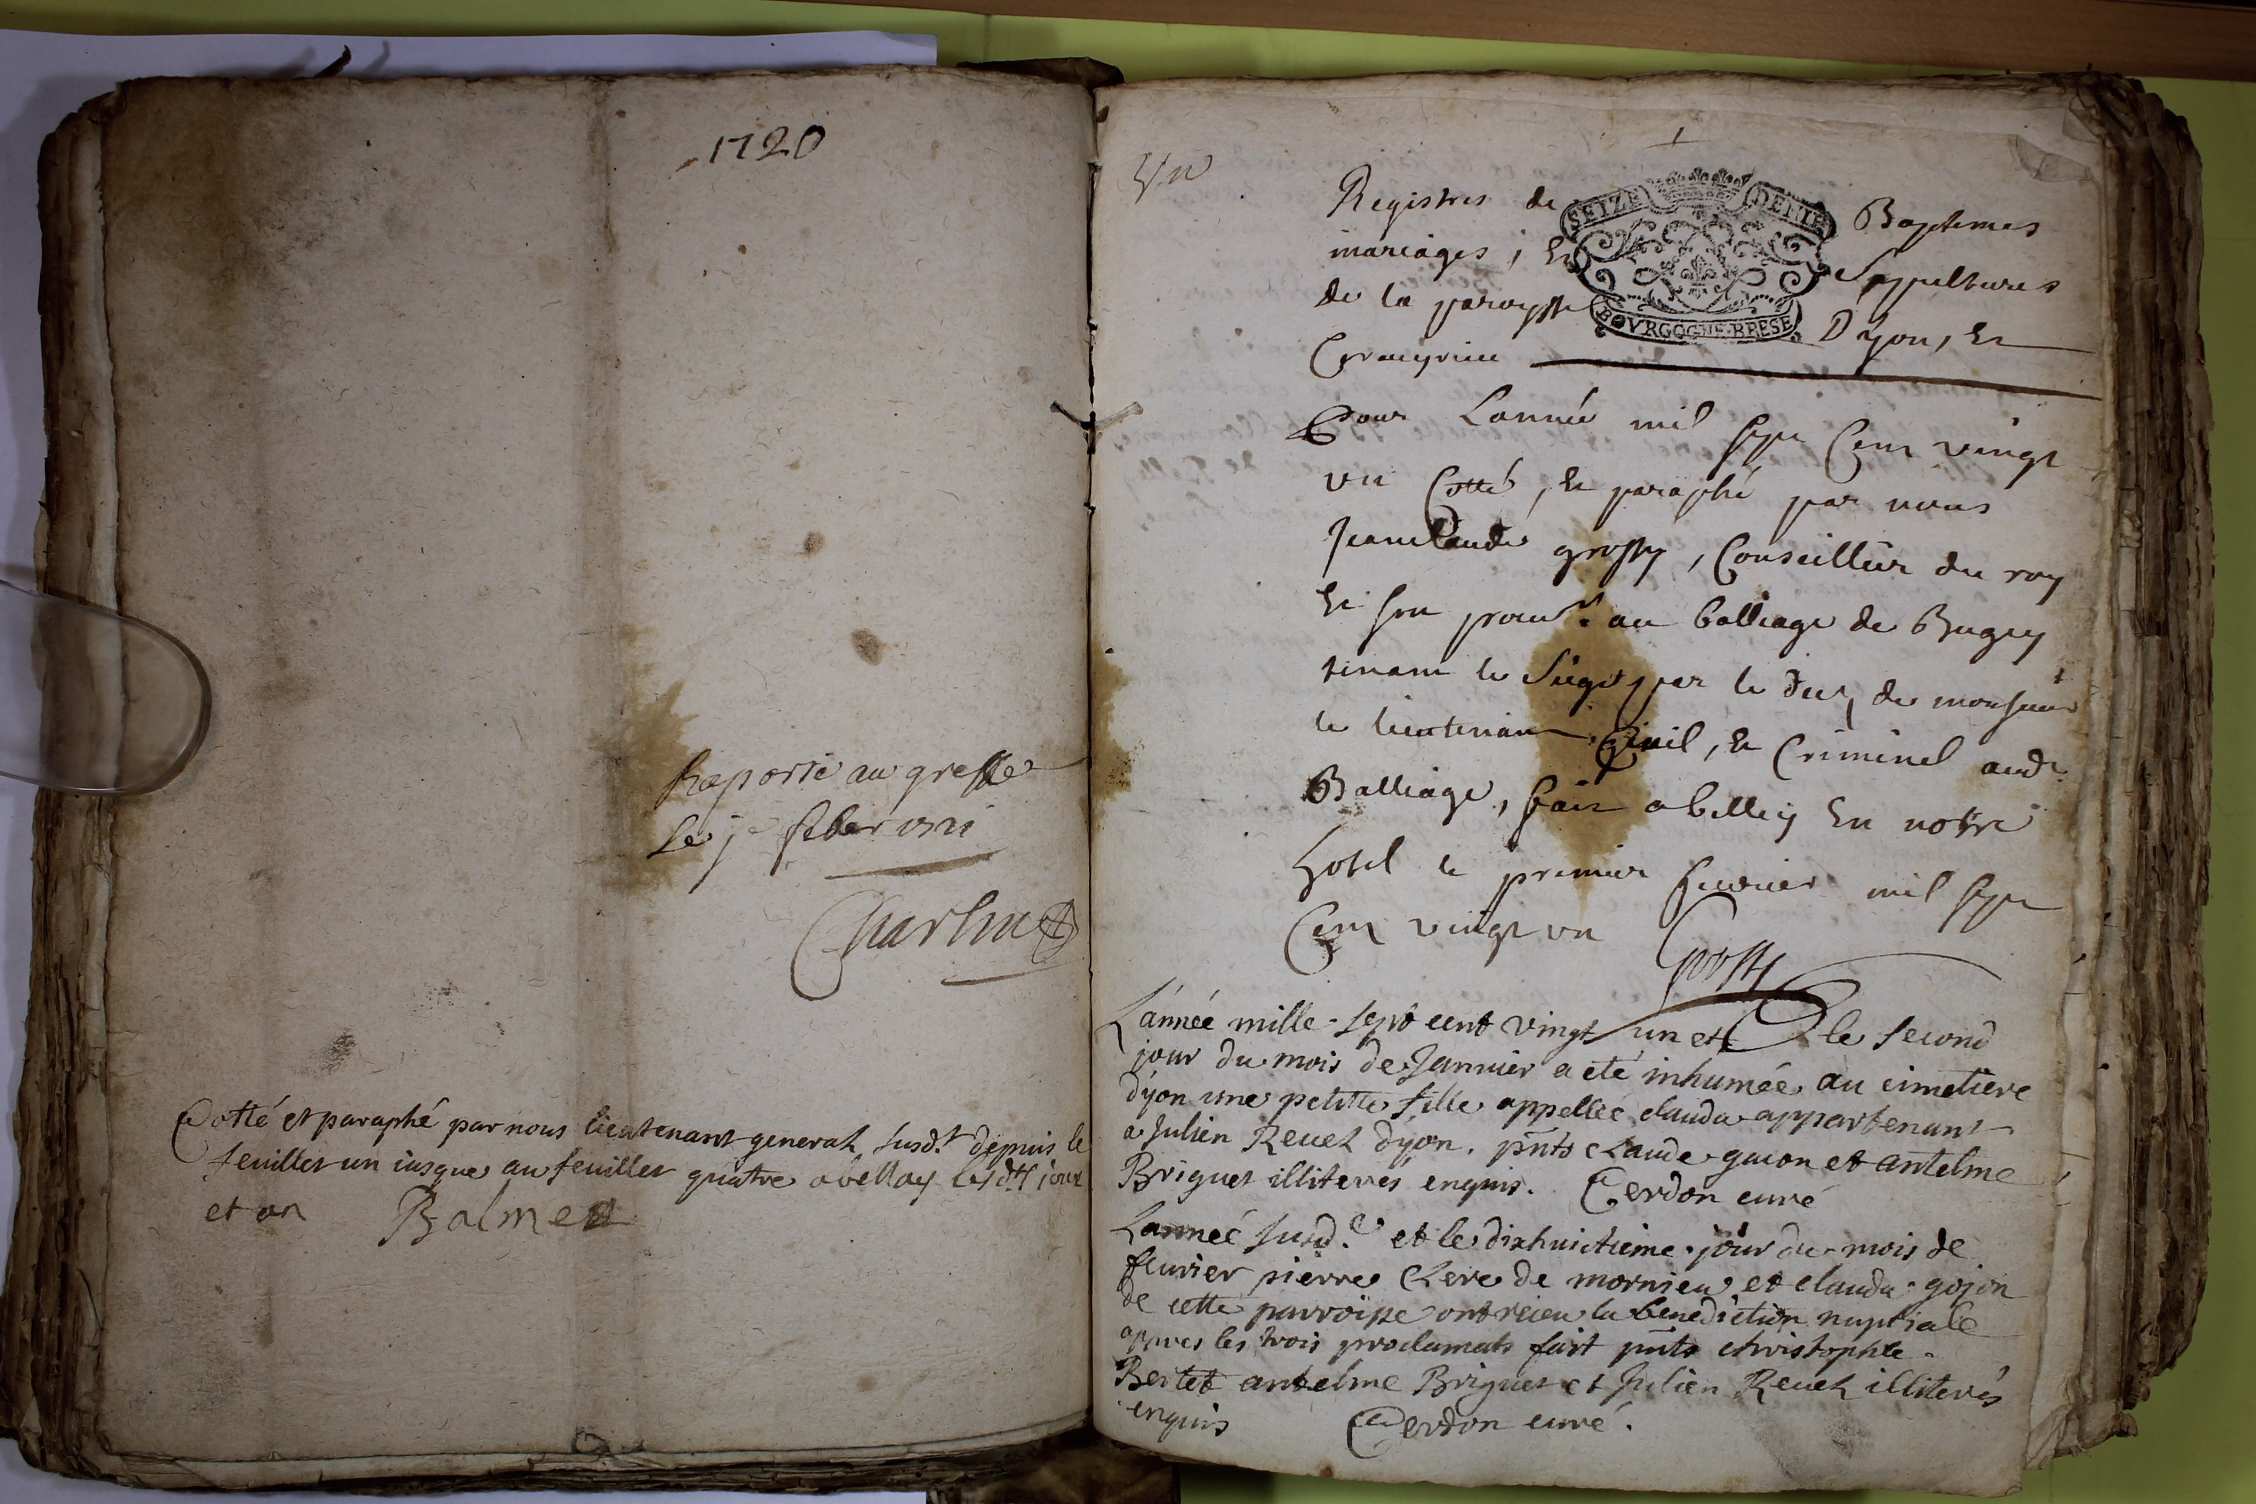 1720
Raporté au greffe
Le je feber 1721
Charlin
Cotté et paraphé par nous lieutenant general susd.t depuis le
feuillet un iusque au feuillet quatre a bellay lesd.ts jour
et an Balmet
1
Un
Registres de Baptemes
mariages, et Seppultures
de la paroysse Dyon, et
SEIZE DENIE
BOVRGOGNE·BRESE
Pour Lannée mil sept Cent vingt
un Cotté, et paraphé par nous
Jean Claude grossy, Conseiller du roy
et son procur.r au balliage de Bugey
tenant le siege par le de monsieur
le lieutenant Civil, et Criminel aud.t
Balliage, fait a belley en notre
hotel le premier feurier mil sept
Cent vingt un Grossy
L'année mille sept cent vingt un et le second
jour du mois de Januier a été inhumée au cimetiere
dyon une petitte fille appellée clauda appartenant
a Julien Reuet dyon. pnts Claude guion et antelme
Briguet illiterés enquis. Cerdon curé
Lannée susd.e et le dixhuictieme jour du mois de
feurier pierre Clere de mornieu et clauda gojon
de cette parroisse ont receu la benediction nuptiale
appres les trois proclamats fait pnts christophle
Bertet antelme Briguet et Julien Reuet illiterés
enquis Cerdon curé.